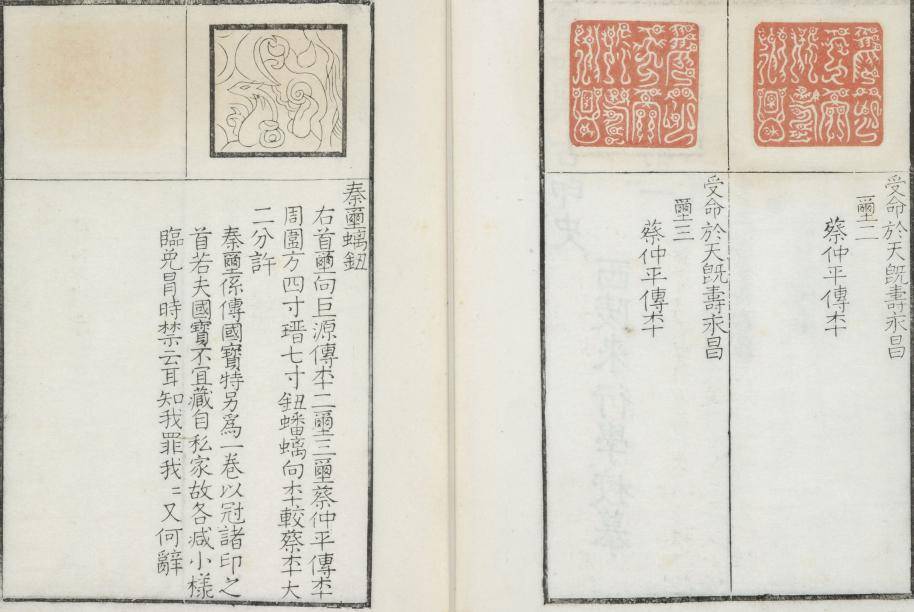 受命於天旣壽永昌
璽二
蔡仲平傳本
受命於天旣壽永昌
璽三
蔡仲平傳本
秦璽螭鈕
右首璽向巨源傳本二璽三璽蔡仲平傳本
周圍方四寸瑨七寸鈕蟠螭向本較蔡本大
二分許
秦璽係傳國寶特另爲一卷以冠諸印之
首若夫國寶不宜藏自私家故各減小樣
臨免冒時禁云耳知我罪我〻又何辭